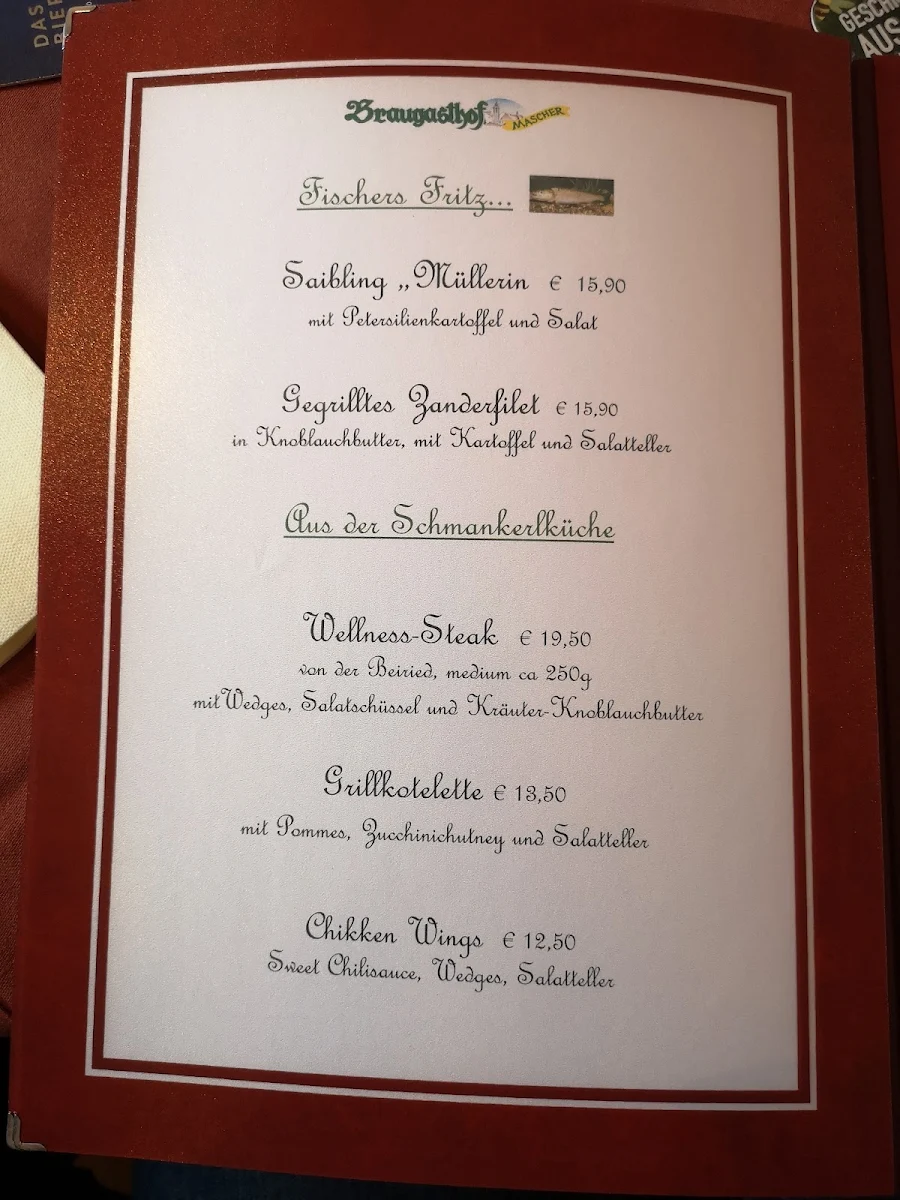 DAS
BIER
GESCH
AUS
Braugasthof MASCHER
Fischers Fritz...
Saibling „Müllerin € 15,90
mit Petersilienkartoffel und Salat
Gegrilltes Zanderfilet € 15,90
in Knoblauchbutter, mit Kartoffel und Salatteller
Aus der Schmankerlküche
Wellness-Steak € 19,50
von der Beiried, medium ca 250g
mit Wedges, Salatschüssel und Kräuter-Knoblauchbutter
Grillkotelette € 13,50
mit Pommes, Zucchinichutney und Salatteller
Chikken Wings € 12,50
Sweet Chilisauce, Wedges, Salatteller